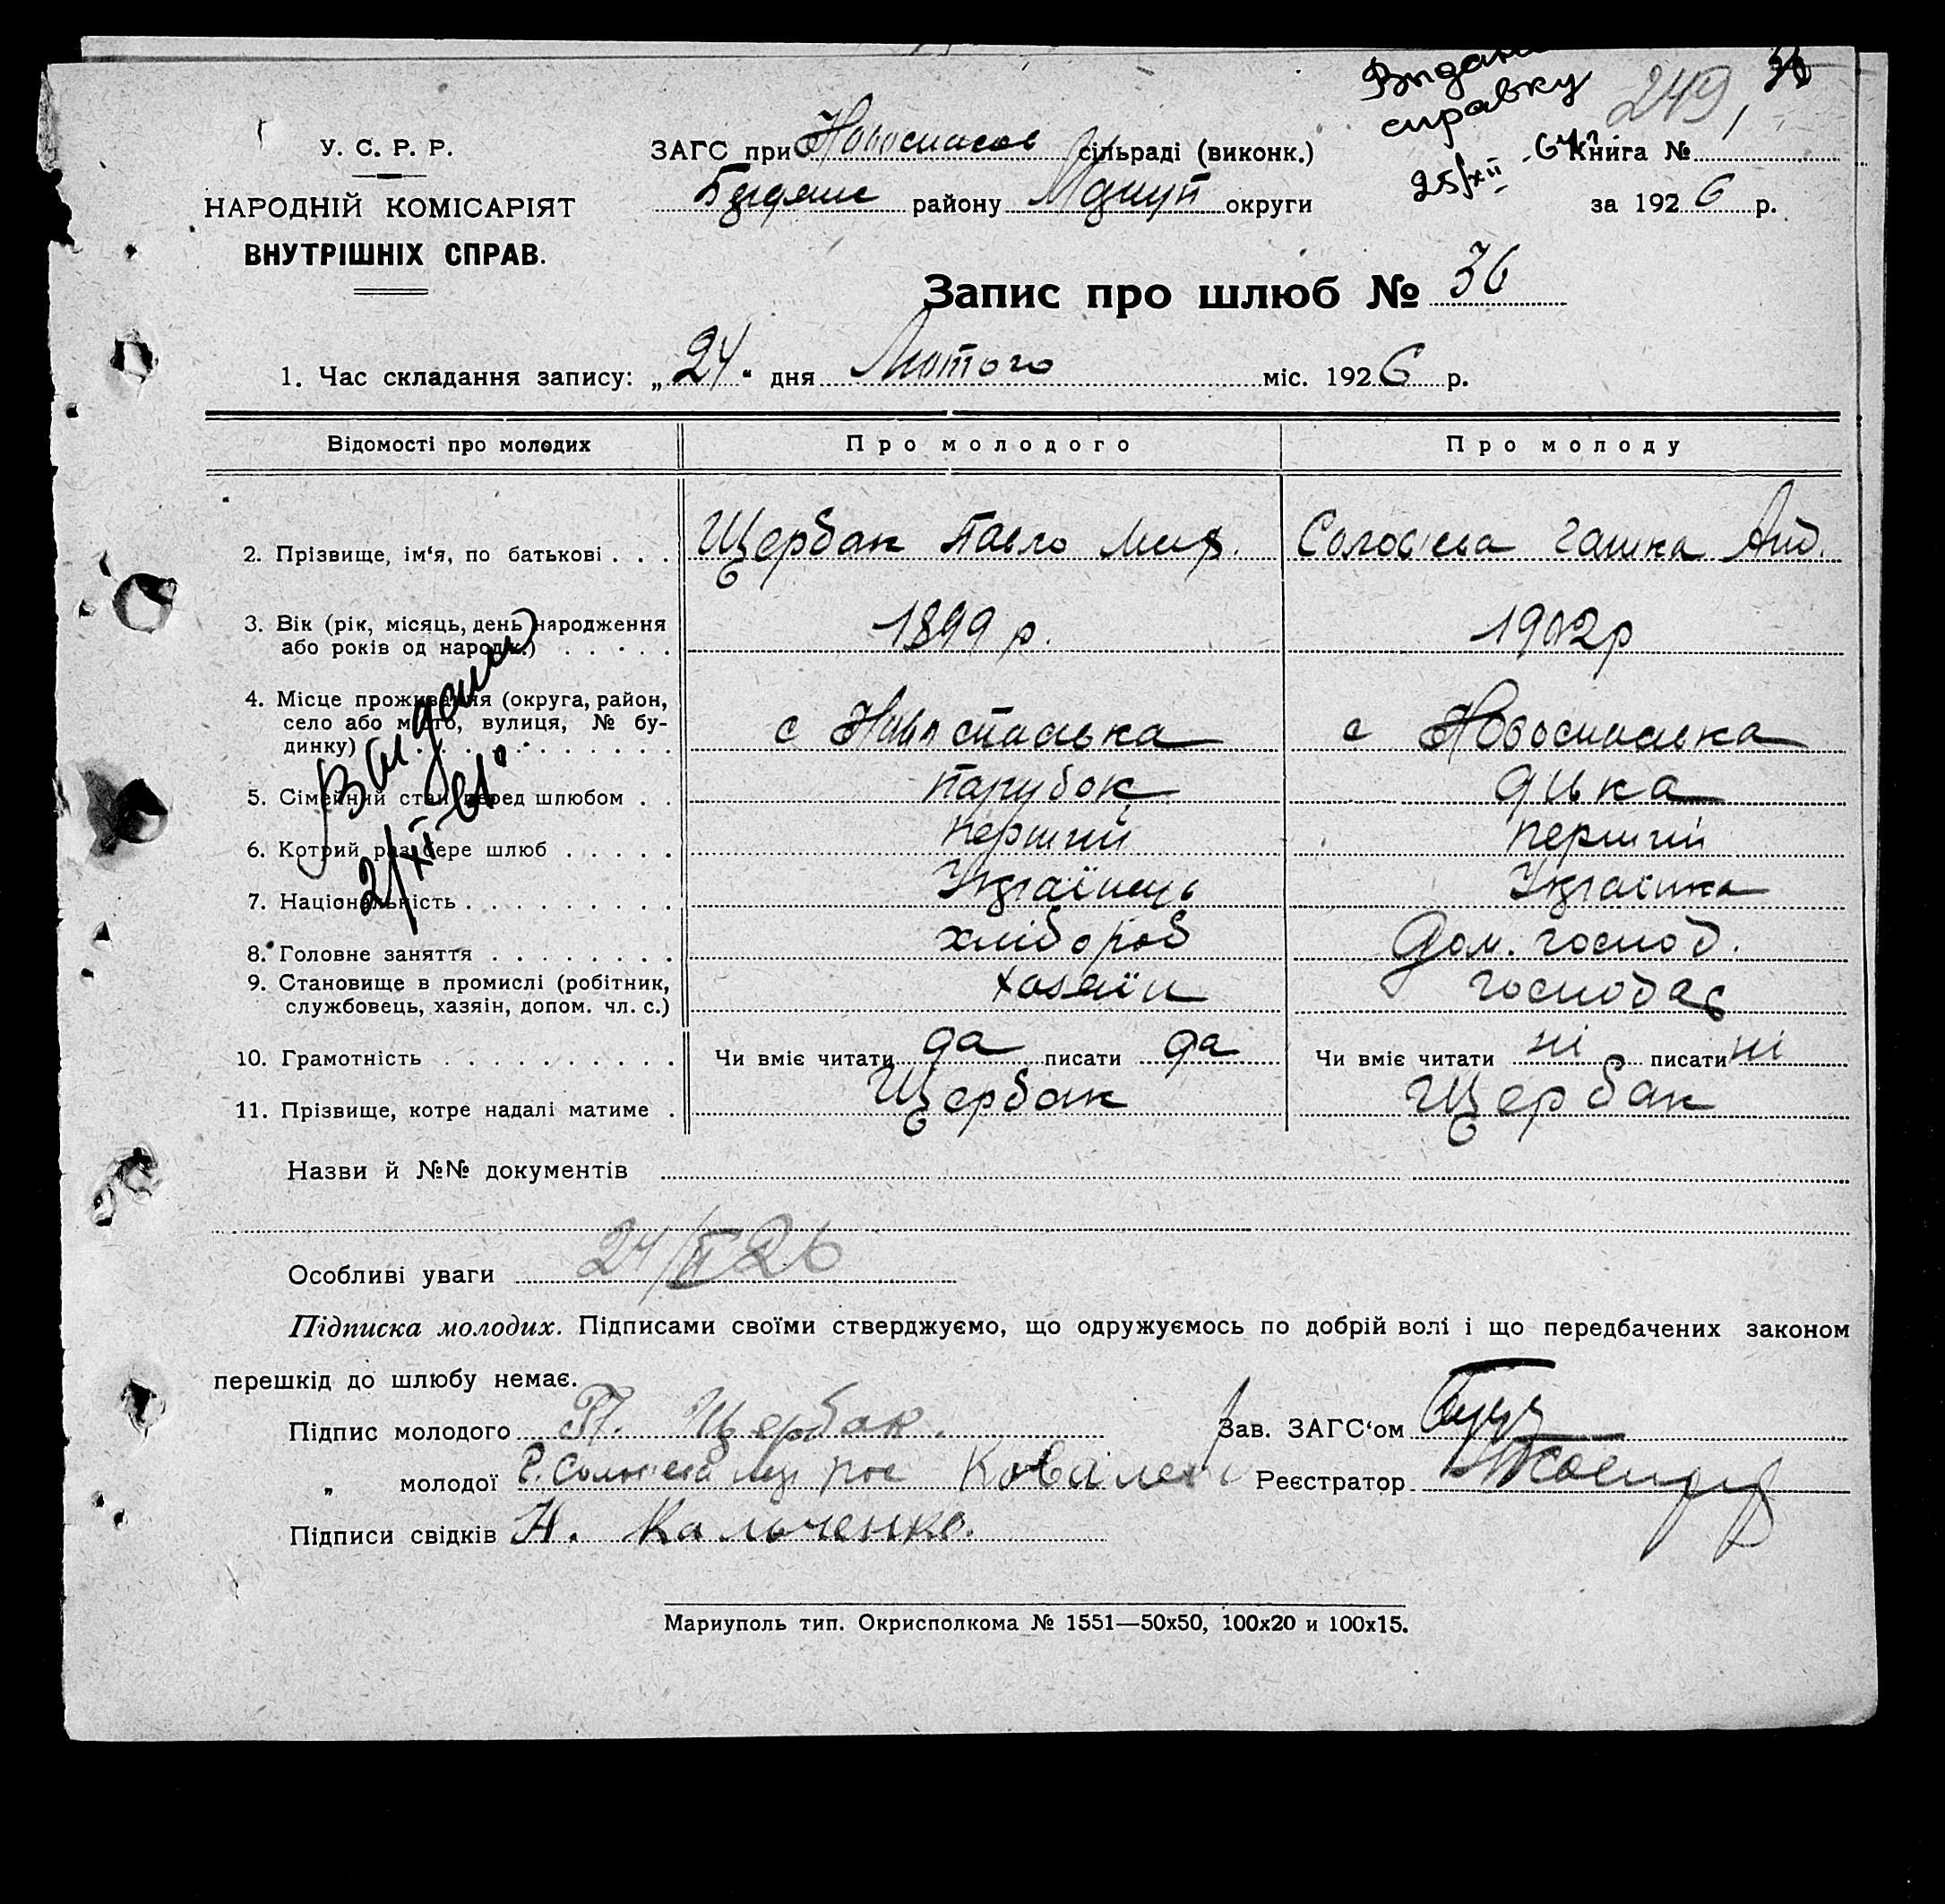 Видана
справку
25/XII-64
249,
У. С. Р. Р.
НАРОДНІЙ КОМІСАРІЯТ
ВНУТРІШНІХ СПРАВ.
ЗАГС при Новоспасов сільраді (виконк.)
Бердянс району Маріуп округи
Книга №
за 1926 р.
Запис про шлюб № 36
1. Час складання запису: „24“ дня Лютого міс. 1926 р.
Відомості про молодих Про молодого Про молоду
2. Прізвище, ім‘я, по батькові . . . Щербак Павло Мит. Солов'єва Гашка Анд.
3. Вік (рік, місяць, день народження
або років од народж.) . . . . . 1899 р. 1902р
4. Місце проживання (округа, район,
село або місто, вулиця, № бу-
динку) . . . . . . . . . . с Новоспаська с Новоспаська
5. Сімейний стан перед шлюбом . . парубок дівка
6. Котрий раз бере шлюб . . . . . перший перший
7. Національність . . . . . . . . . Українець Українка
8. Головне заняття . . . . . . . . хлібороб Дом. господ.
9. Становище в промислі (робітник,
службовець, хазяін, допом. чл. с.) хозяїн господар
10. Грамотність . . . . . . . . . . Чи вміє читати да писати да Чи вміє читати ні писати ні
11. Прізвище, котре надалі матиме . Щербак Щербак
Видани
2/XI-61
Назви й №№ документів
Особливі уваги 24/II 26
Підписка молодих. Підписами своїми стверджуємо, що одружуємось по добрій волі і що передбачених законом
перешкід до шлюбу немає.
Підпис молодого П. Щербак. Зав. ЗАГС‘ом
„ молодої Реєстратор
Підписи свідків Н. Кальченко.
Мариуполь тип. Окрисполкома № 1551—50х50, 100х20 и 100х15.